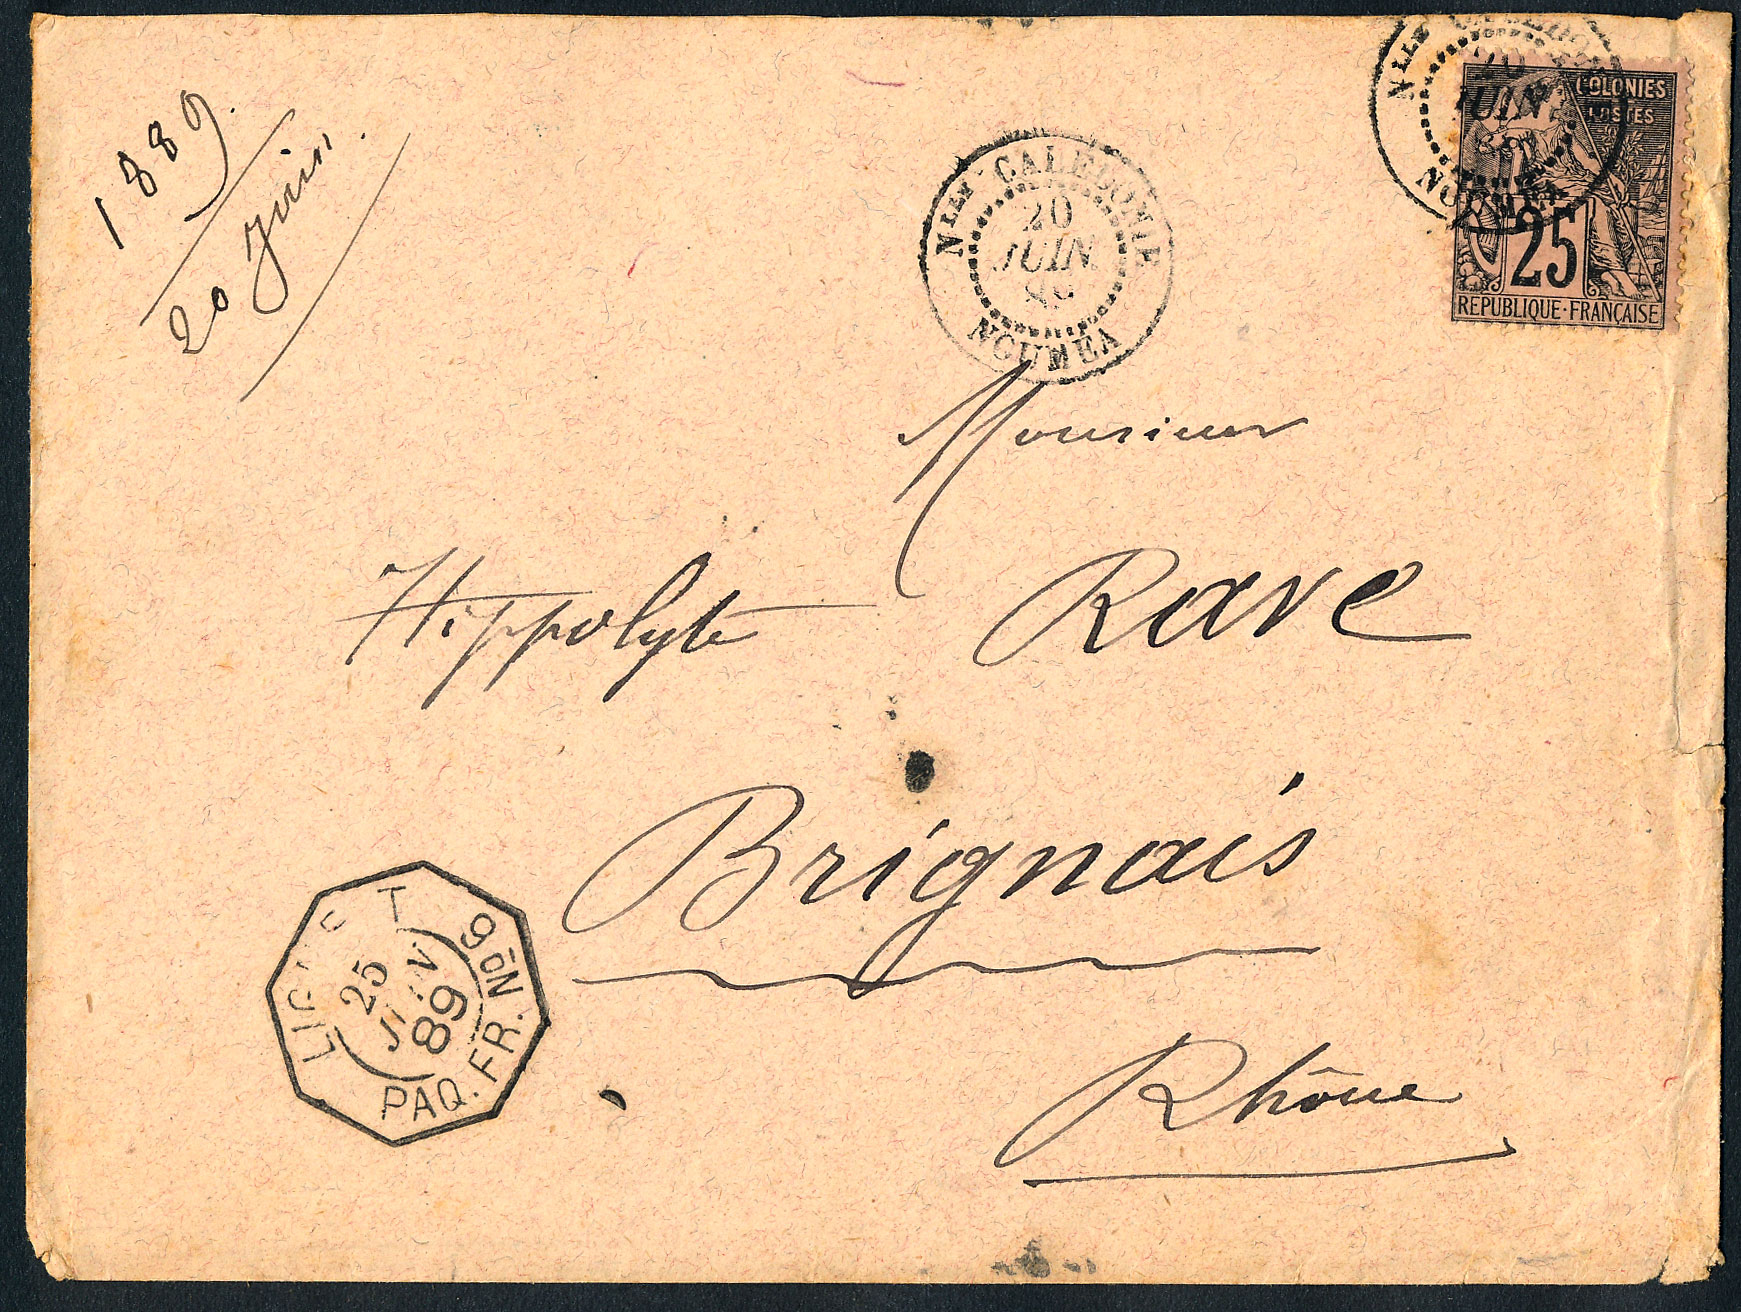 1889.
20 juin.
Nlle CALEDONIE
20
JUIN
NOUMEA
Nlle CALEDONIE
20
JUIN
89
NOUMEA
COLONIES
POSTES
25
REPUBLIQUE·FRANÇAISE
Monsieur
Hippolyte Rave
Brignais
Rhône
LIGNE T
PAQ. FR. No9
25
JUIN
89